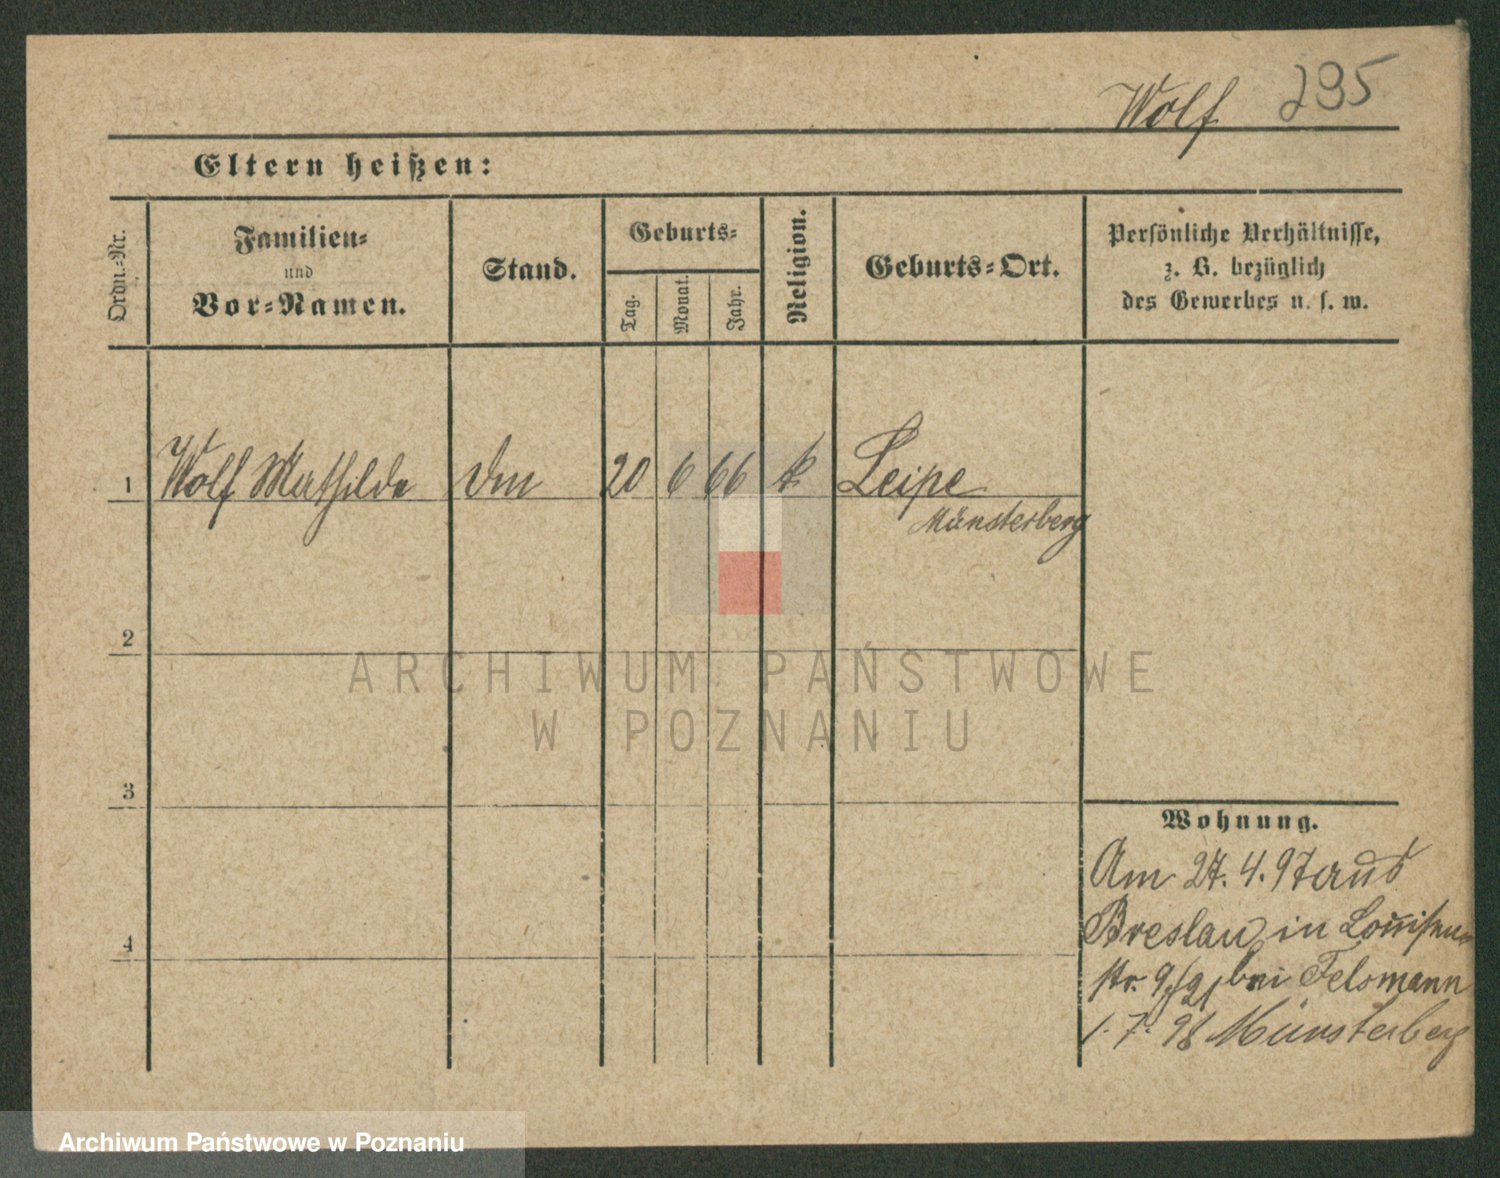 Wolf 295
Eltern heißen:
Ordn.-Nr.
Familien-
und
Vor-Namen.
Stand.
Geburts-
Tag.
Monat.
Jahr.
Religion.
Geburts-Ort.
Persönliche Verhältnisse,
z. B. bezüglich
des Gewerbes u. s. w.
1 Wolf Mathilde 20 6 66 k Leipe
Münsterberg
2
3
4
Wohnung.
Am 27.4.97 aus
Breslau in Louisen-
str. bei Felsmann
1.7.98 Münsterberg
ARCHIWUM PAŃSTWOWE
W POZNANIU
Archiwum Państwowe w Poznaniu